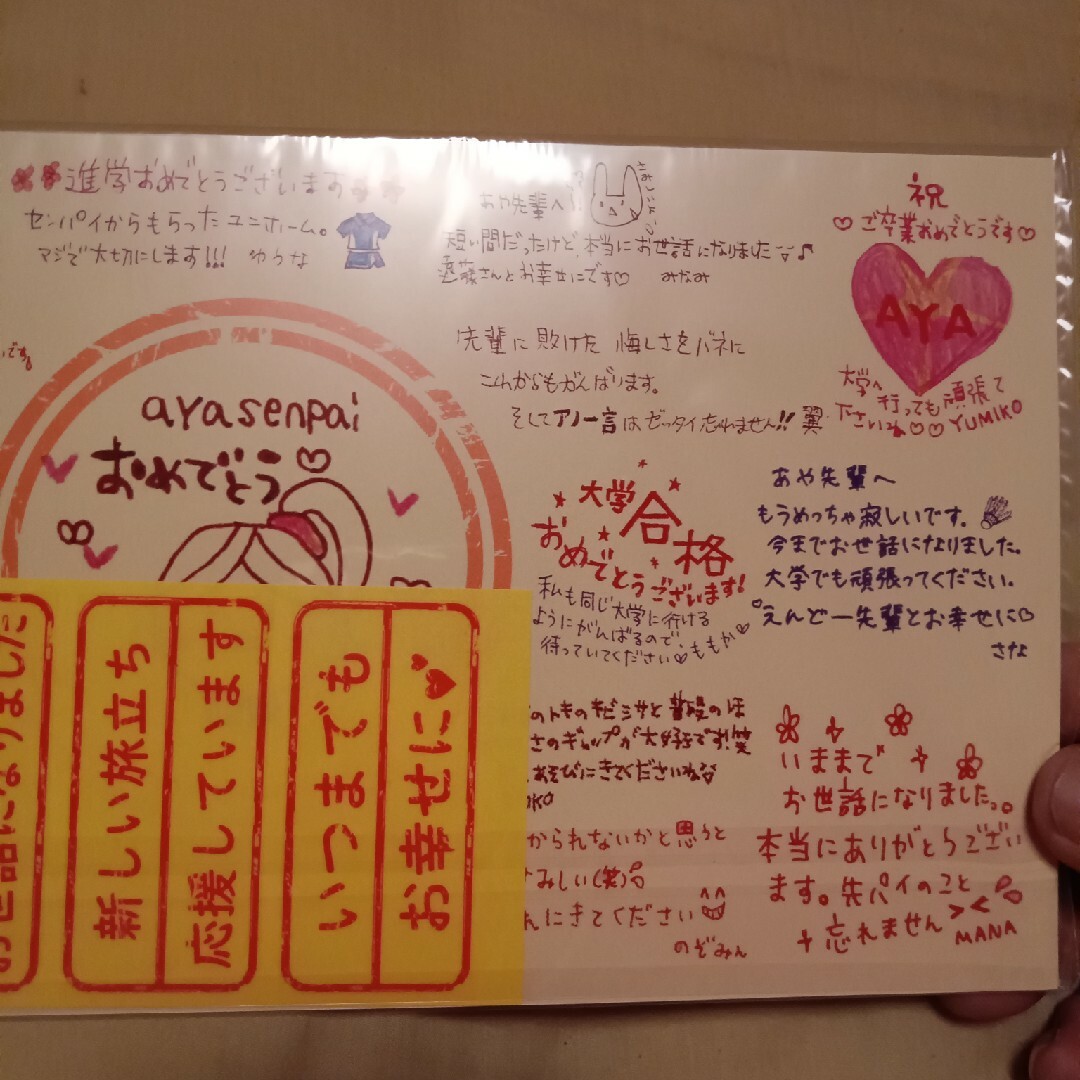 進学おめでとうございます
センパイからもらったユニホーム。
マジで大切にします!!! ゆうな
です。
ayasenpai
おめでとう
あや先輩へ
短い間だったけど、本当にお世話になりました♪
遠藤さんとお幸せにです♡ みなみ
先輩に敗けた 悔しさをバネに
こんからもがんばります。
そしてアノ一言はゼッタイ忘れません!! 翼
祝
♡ご卒業おめでとうです♡
AYA
大学へ行っても頑張って
下さいね♡♡ YUMIKO
大学合格
おめでとうございます!
私も同じ大学に行ける
ようにがんばるので、
待っていてください♡ももか♡
あや先輩へ
もうめっちゃ寂しいです。
今までお世話になりました。
大学でも頑張ってください。
えんどー先輩とお幸せに♡
さな
のトキのキビシサと普段のほ
さのギャップが大好きです!笑
あそびにきてくださいね
OKO
かられないかと思うと
みしい(笑)
んにきてください
のぞみん
いままで
お世話になりました。
本当にありがとうござい
ます。先パイのこと
忘れません >< MANA
お世話になりました
新しい旅立ち
応援しています
いつまでも
お幸せに♥